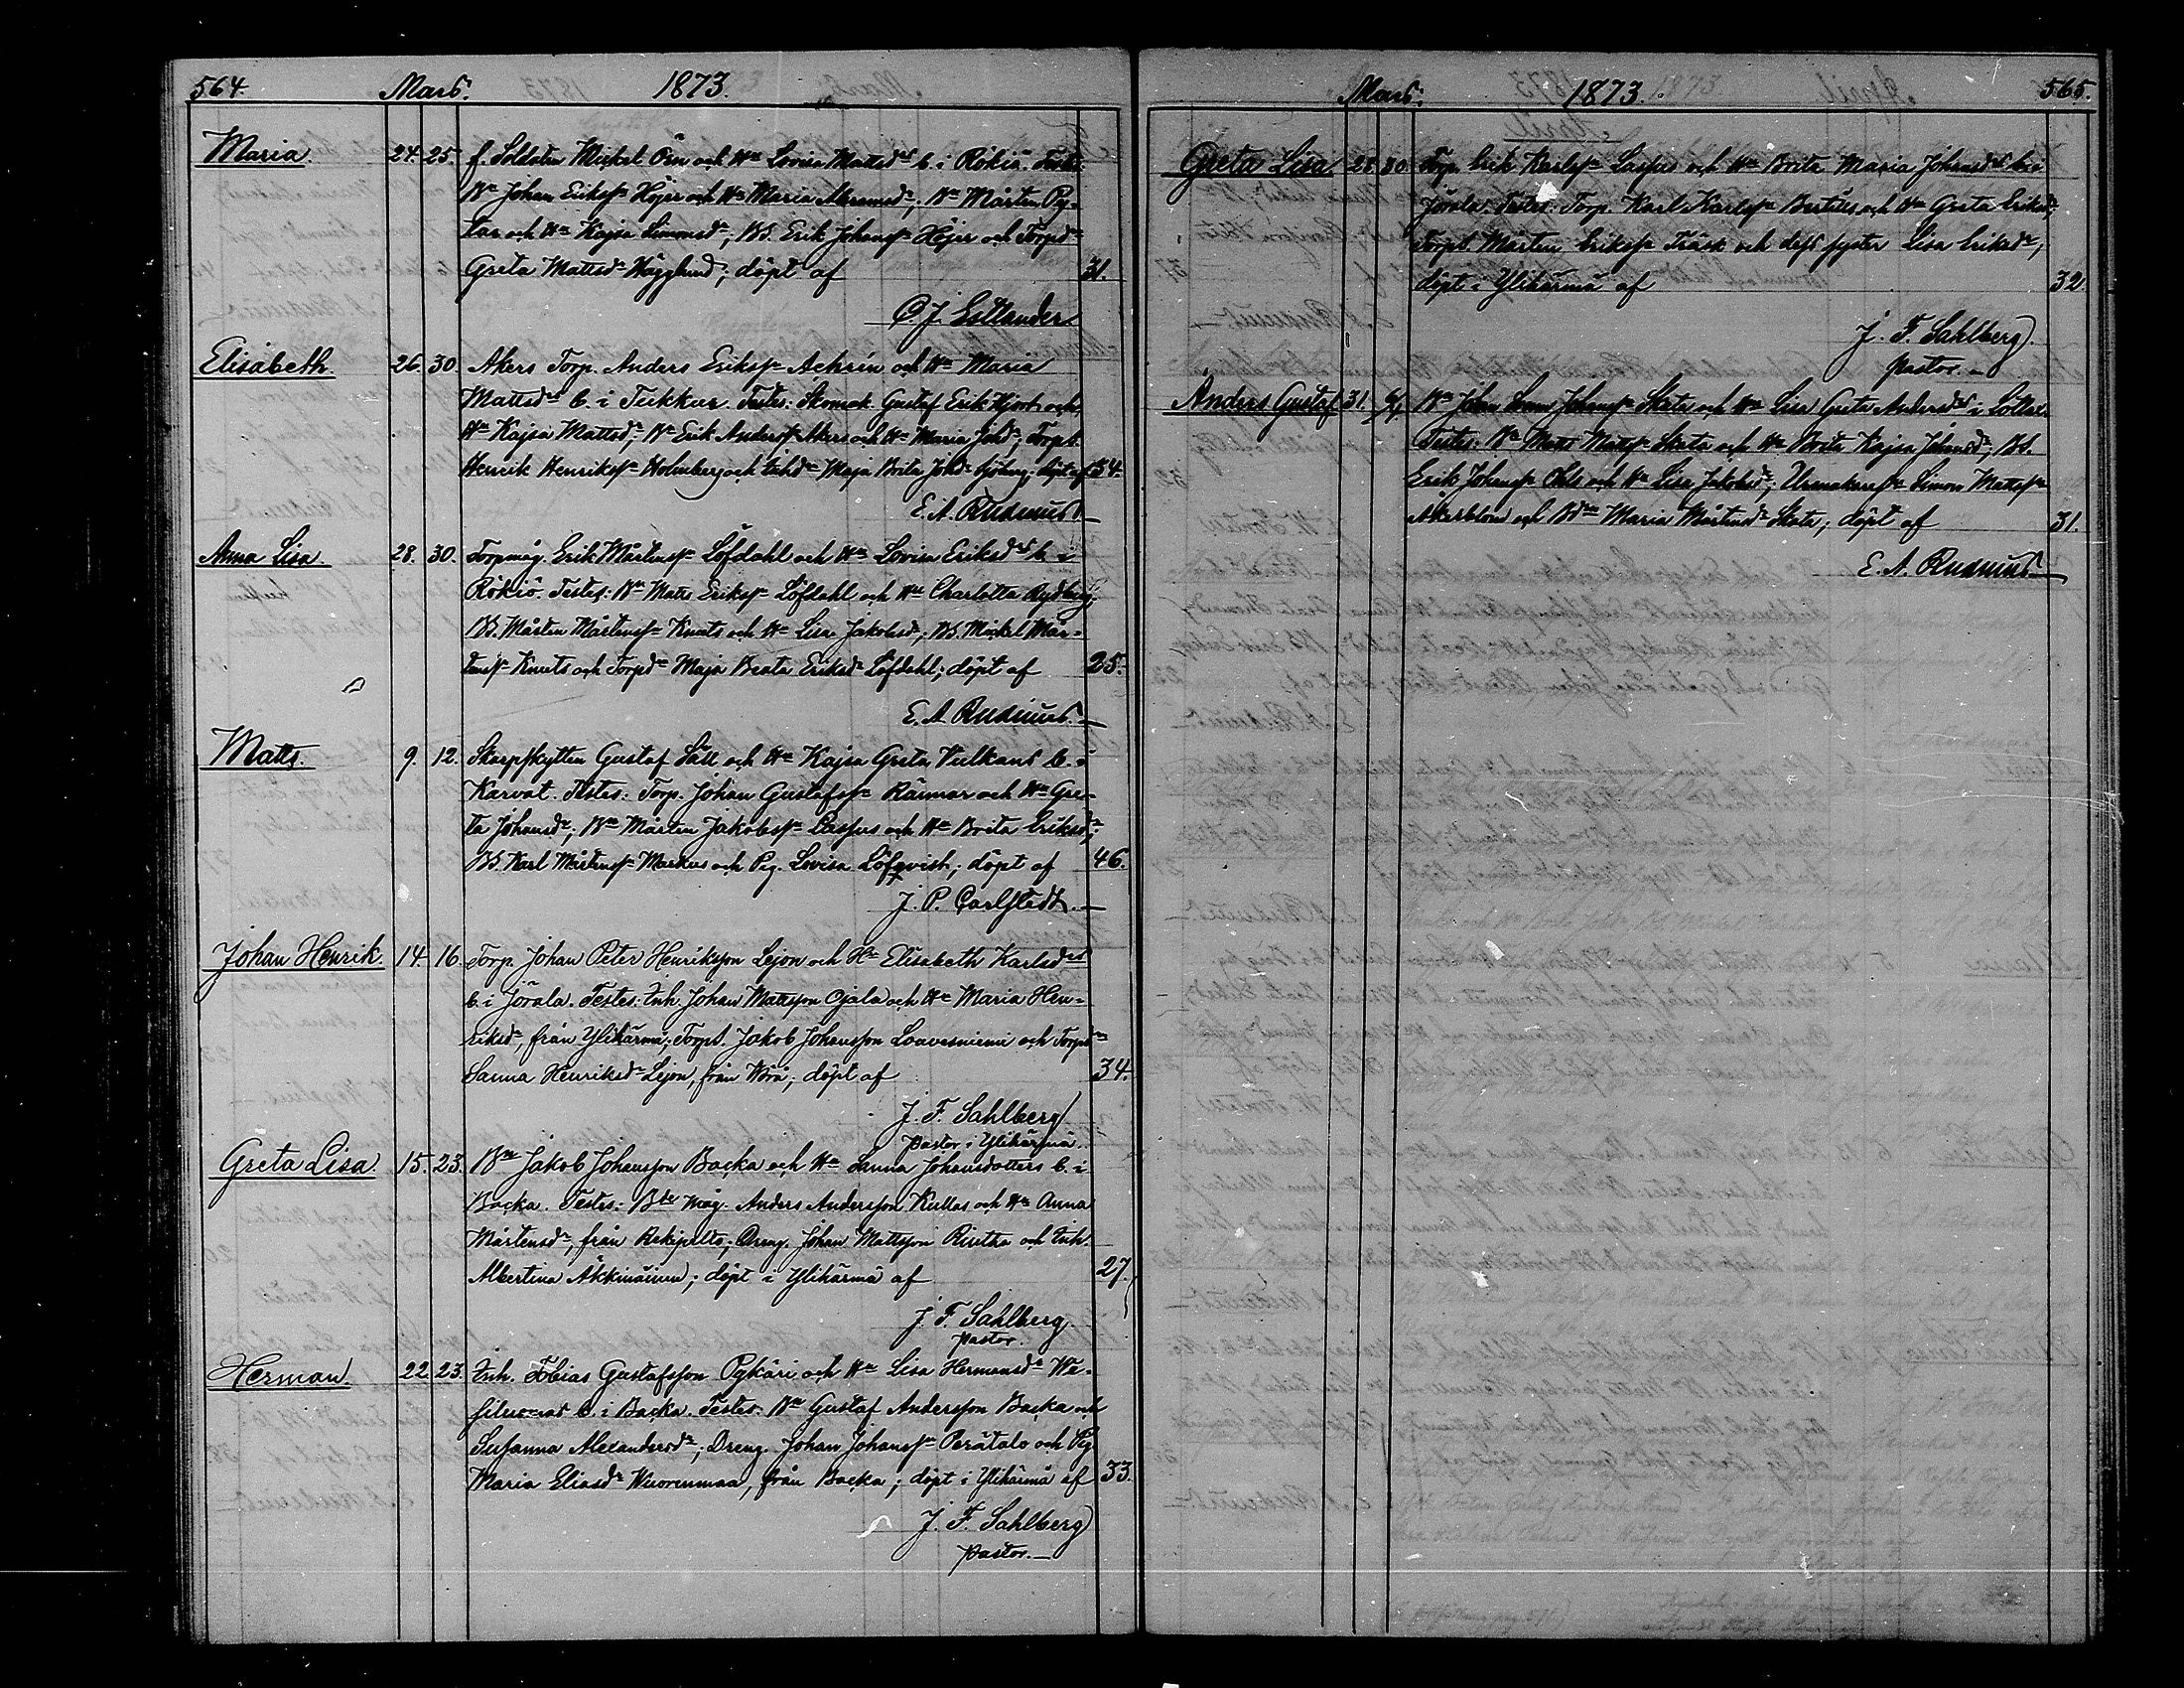 564. Mars. 1873.
Maria. 24. 25. f. Soldaten Mickel Örn och Hu Lovisa Mattsdrs b. i Rökiö. Testes:
Bn Johan Eriksn Höjer och Hu Maria Abramsdr; Bn Mårten Py-
lar och Hu Kajsa Simonsdr; BS. Erik Johansn Höjer och Torpdr
Greta Mattsdr Hägglund; döpt af 31.
C. J. Estlander
Elisabeth. 26. 30. Akers Torp. Anders Eriksn Achrén och Hu Maria
Mattsdrs b. i Tukkur. Testes: Skomak. Gustaf Erik Hjort och
Hu Kajsa Mattsdr; Bn Erik Andersn Akers och Hu Maria Johdr; Torpts
Henrik Henriksn Holmberg och Inhdr Maja Brita Johdr Sjöberg; döpt af 34.
E. A. Rudnäus.
Anna Lisa. 28. 30. Torpmåg. Erik Mårtensn Löfdahl och Hu Lovisa Eriksdrs b. i
Rökiö. Testes: Bn Matts Eriksn Löfdahl och Hu Charlotta Rydberg;
BS. Mårten Mårtensn Knuts och Hu Lisa Jakobsdr; BS. Mickel Mår-
tensn Knuts och Torpdr Maja Beata Eriksdr Löfdahl; döpt af 25.
E. A. Rudnäus.
Matts. 9. 12. Skarpskytten Gustaf Säll och Hu Kajsa Greta Vulkans b. i
Karvat. Testes: Torp. Johan Gustafsn Rännar och Hu Gre-
ta Johansdr; Bn Mårten Jakobsn Caspus och Hu Brita Eriksdr;
BS. Karl Mårtensn Markus och Pig. Lovisa Löfqvist; döpt af 46.
J. P. Carlstedt.
Johan Henrik. 14. 16. Torp. Johan Peter Henriksson Lejon och Hu Elisabeth Karlsdrs
b. i Jörala. Testes: Inh. Johan Mattsson Ojala och Hu Maria Hen-
riksdr, från Ylihärmä; Torps. Jakob Johansson Loavesniemi och Torpdr
Sanna Henriksdr Lejon, från Wörå; döpt af 34.
J. F. Sahlberg
pastor i Ylihärmä.
Greta Lisa. 15. 23. Bn Jakob Johansson Backa och Hu Sanna Johansdotters b. i
Backa. Testes: Bde måg. Anders Andersson Kullas och Hu Anna
Mårtensdr, från Rekipelto; Dreng. Johan Mattsson Rintha och Inh.
Albertina Äkkinäinen; döpt i Ylihärmä af 27.
J. F. Sahlberg
pastor.
Herman. 22. 23. Inh. Tobias Gustafsson Pykäri och Hu Lisa Hermansdr We-
b. i Backa. Testes: Bn Gustaf Andersson Backa och
Susanna Alexandersdr; Dreng. Johan Johansn Perätalo och Pig.
Maria Eliasdr Wuorenmaa, från Backa; döpt i Ylihärmä af 33.
J. F. Sahlberg
pastor.
Mars. 1873. 565.
Greta Lisa. 28. 30. Torp. Erik Karlsn Caspus och Hu Brita Maria Johansdrs b. i
Jörala. Testes: Torp. Karl Karlsn Bertills och Hu Greta Eriksdr;
Torpts. Mårten Eriksn Träsk och dess syster Lisa Eriksdr,
döpt i Ylihärmä af 32.
J. F. Sahlberg
pastor.
Anders Gustaf 31. 6/4. Bn Johan Johansn Skata och Hu Lisa Greta Andersdrs i Lotlax.
Testes: Bn Matts Mattsn Skata och Hu Brita Kajsa Johansdr; BS.
Erik Johansn Ohls och Hu Lisa Jakobsdr; Urmakaresn Simon Mattsn
Åkerblom och Bdn Maria Mårtensdr Skata; döpt af 31.
E. A. Rudnäus.